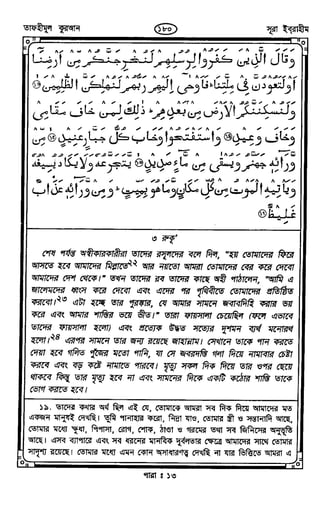 তাফহীমুল কুরআন
১৮০
সূরা ইবরাহীম
وَقَالَ الَّذِينَ كَفَرُوا لِرُسُلِهِمْ لَنُخْرِجَنَّكُمْ مِّنْ أَرْضِنَا
أَوْ لَتَعُودُنَّ فِي مِلَّتِنَا ۖ فَأَوْحَىٰ إِلَيْهِمْ رَبُّهُمْ لَنُهْلِكَنَّ الظَّالِمِينَ ⑬
وَلَنُسْكِنَنَّكُمُ الْأَرْضَ مِنْ بَعْدِهِمْ ۚ ذَٰلِكَ لِمَنْ خَافَ مَقَامِي
وَخَافَ وَعِيدِ ⑭ وَاسْتَفْتَحُوا وَخَابَ كُلُّ جَبَّارٍ عَنِيدٍ ⑮ مِّنْ
وَرَائِهِ جَهَنَّمُ وَيُسْقَىٰ مِنْ مَّاءٍ صَدِيدٍ ⑯ يَتَجَرَّعُهُ وَلَا يَكَادُ يُسِيغُهُ
وَيَأْتِيهِ الْمَوْتُ مِنْ كُلِّ مَكَانٍ وَمَا هُوَ بِمَيِّتٍ ۖ وَمِنْ وَرَائِهِ عَذَابٌ
غَلِيظٌ ⑰
৩ রুকূ'
শেষ পর্যন্ত অস্বীকারকারীরা তাদের রসূলদের বলে দিল, "হয় তোমাদের ফিরে
আসতে হবে আমাদের মিল্লাতে২২ আর নয়তো আমরা তোমাদের বের করে দেবো
আমাদের দেশ থেকে।" তখন তাদের রব তাদের কাছে অহী পাঠালেন, "আমি এ
জালেমদের ধ্বংস করে দেবো এবং এদের পর পৃথিবীতে তোমাদের প্রতিষ্ঠিত
করবো।২৩ এটা হচ্ছে তার পুরস্কার, যে আমার সামনে জবাবদিহি করার ভয়
করে এবং আমার শাস্তির ভয়ে ভীত।" তারা ফায়সালা চেয়েছিল (ফলে এভাবে
তাদের ফায়সালা হলো) এবং প্রত্যেক উদ্ধত সত্যের দুশমন ব্যর্থ মনোরথ
হলো।২৪ এরপর সামনে তার জন্য রয়েছে জাহান্নাম। সেখানে তাকে পান করতে
দেয়া হবে গলিত পুঁজের মতো পানি, যা সে জবরদস্তি গলা দিয়ে নামাবার চেষ্টা
করবে এবং বড় কষ্টে নামাতে পারবে। মৃত্যু সকল দিক দিয়ে তার ওপর ছেয়ে
থাকবে কিন্তু তার মৃত্যু হবে না এবং সামনের দিকে একটি কঠোর শাস্তি তাকে
ভোগ করতে হবে।
১৯. তাদের কথার অর্থ ছিল এই যে, তোমাকে আমরা সব দিক দিয়ে আমাদের মত
একজন মানুষই দেখছি। তুমি পানাহার করো, নিদ্রা যাও, তোমার স্ত্রী ও সন্তানাদি আছে,
তোমার মধ্যে ক্ষুধা, পিপাসা, রোগ, শোক, ঠাণ্ডা ও গরমের তথা সব জিনিসের অনুভূতি
আছে। এসব ব্যাপারে এবং সব ধরনের মানবিক দুর্বলতার ক্ষেত্রে আমাদের সাথে তোমার
সাদৃশ্য রয়েছে। তোমার মধ্যে এমন কোন অসাধারণত্ব দেখছি না যার ভিত্তিতে আমরা এ
পারা : ১৩